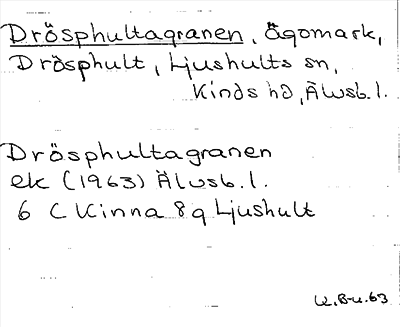 Drösphultagranen, Ägomark,
Drösphult, Ljushults sn,
Kinds hd, Älvsb. l.
Drösphultagranen
ek (1963) Älvsb. l.
6 C Kinna 8 g Ljushult
K. B-u. 63